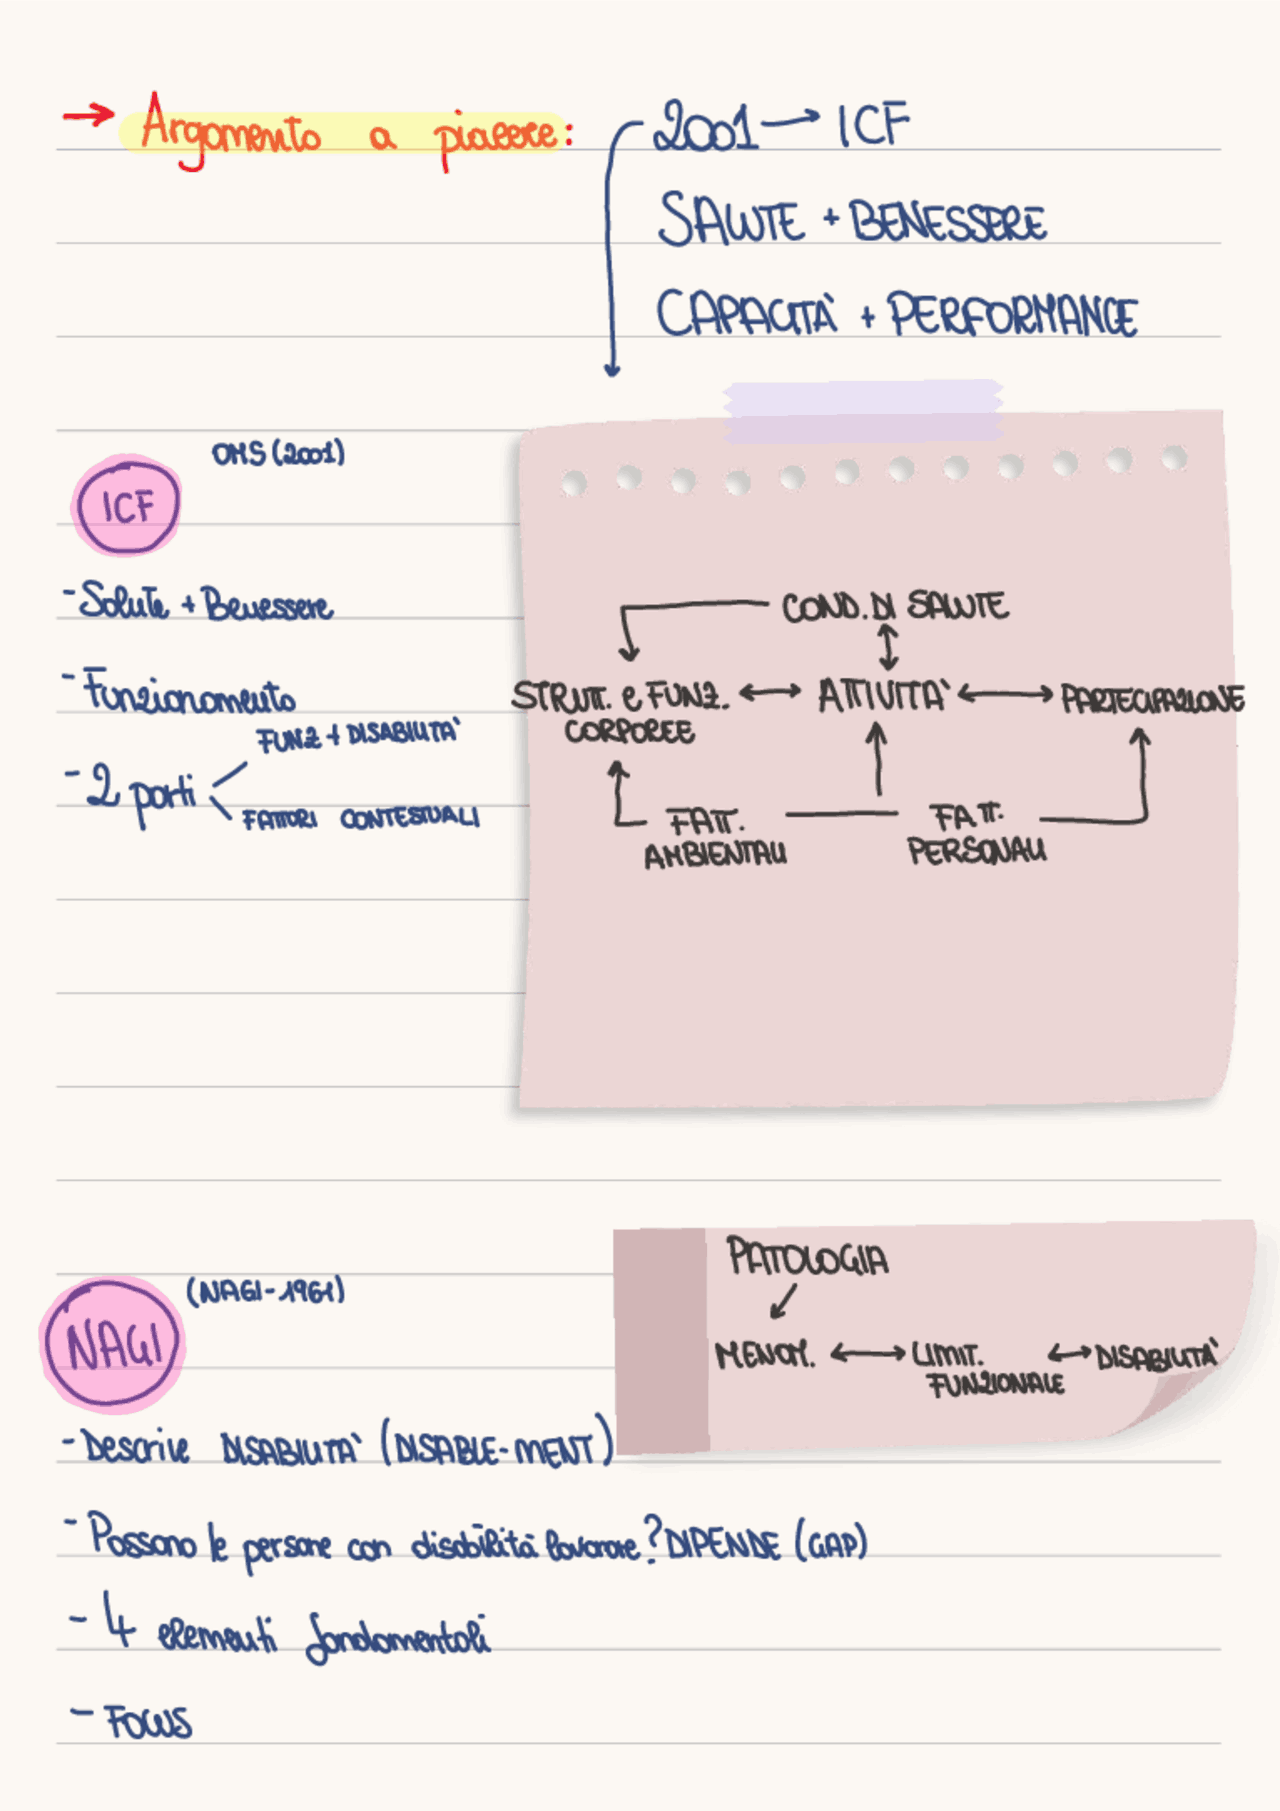 → Argomento a piacere:
2001 → ICF
SALUTE + BENESSERE
CAPACITÀ + PERFORMANCE
OMS (2001)
ICF
- Salute + Benessere
- Funzionamento
- 2 parti
FUNZ + DISABILITÀ
FATTORI CONTESTUALI
COND. DI SALUTE
STRUTT. e FUNZ. CORPOREE ↔ ATTIVITÀ ↔ PARTECIPAZIONE
FATT. AMBIENTALI
FATT. PERSONALI
(NAGI-1961)
NAGI
PATOLOGIA
MENOM. ↔ LIMIT. FUNZIONALE ↔ DISABILITÀ
- Descrive DISABILITÀ (DISABLE-MENT)
- Possono le persone con disabilità lavorare? DIPENDE (GAP)
- 4 elementi fondamentali
- FOCUS